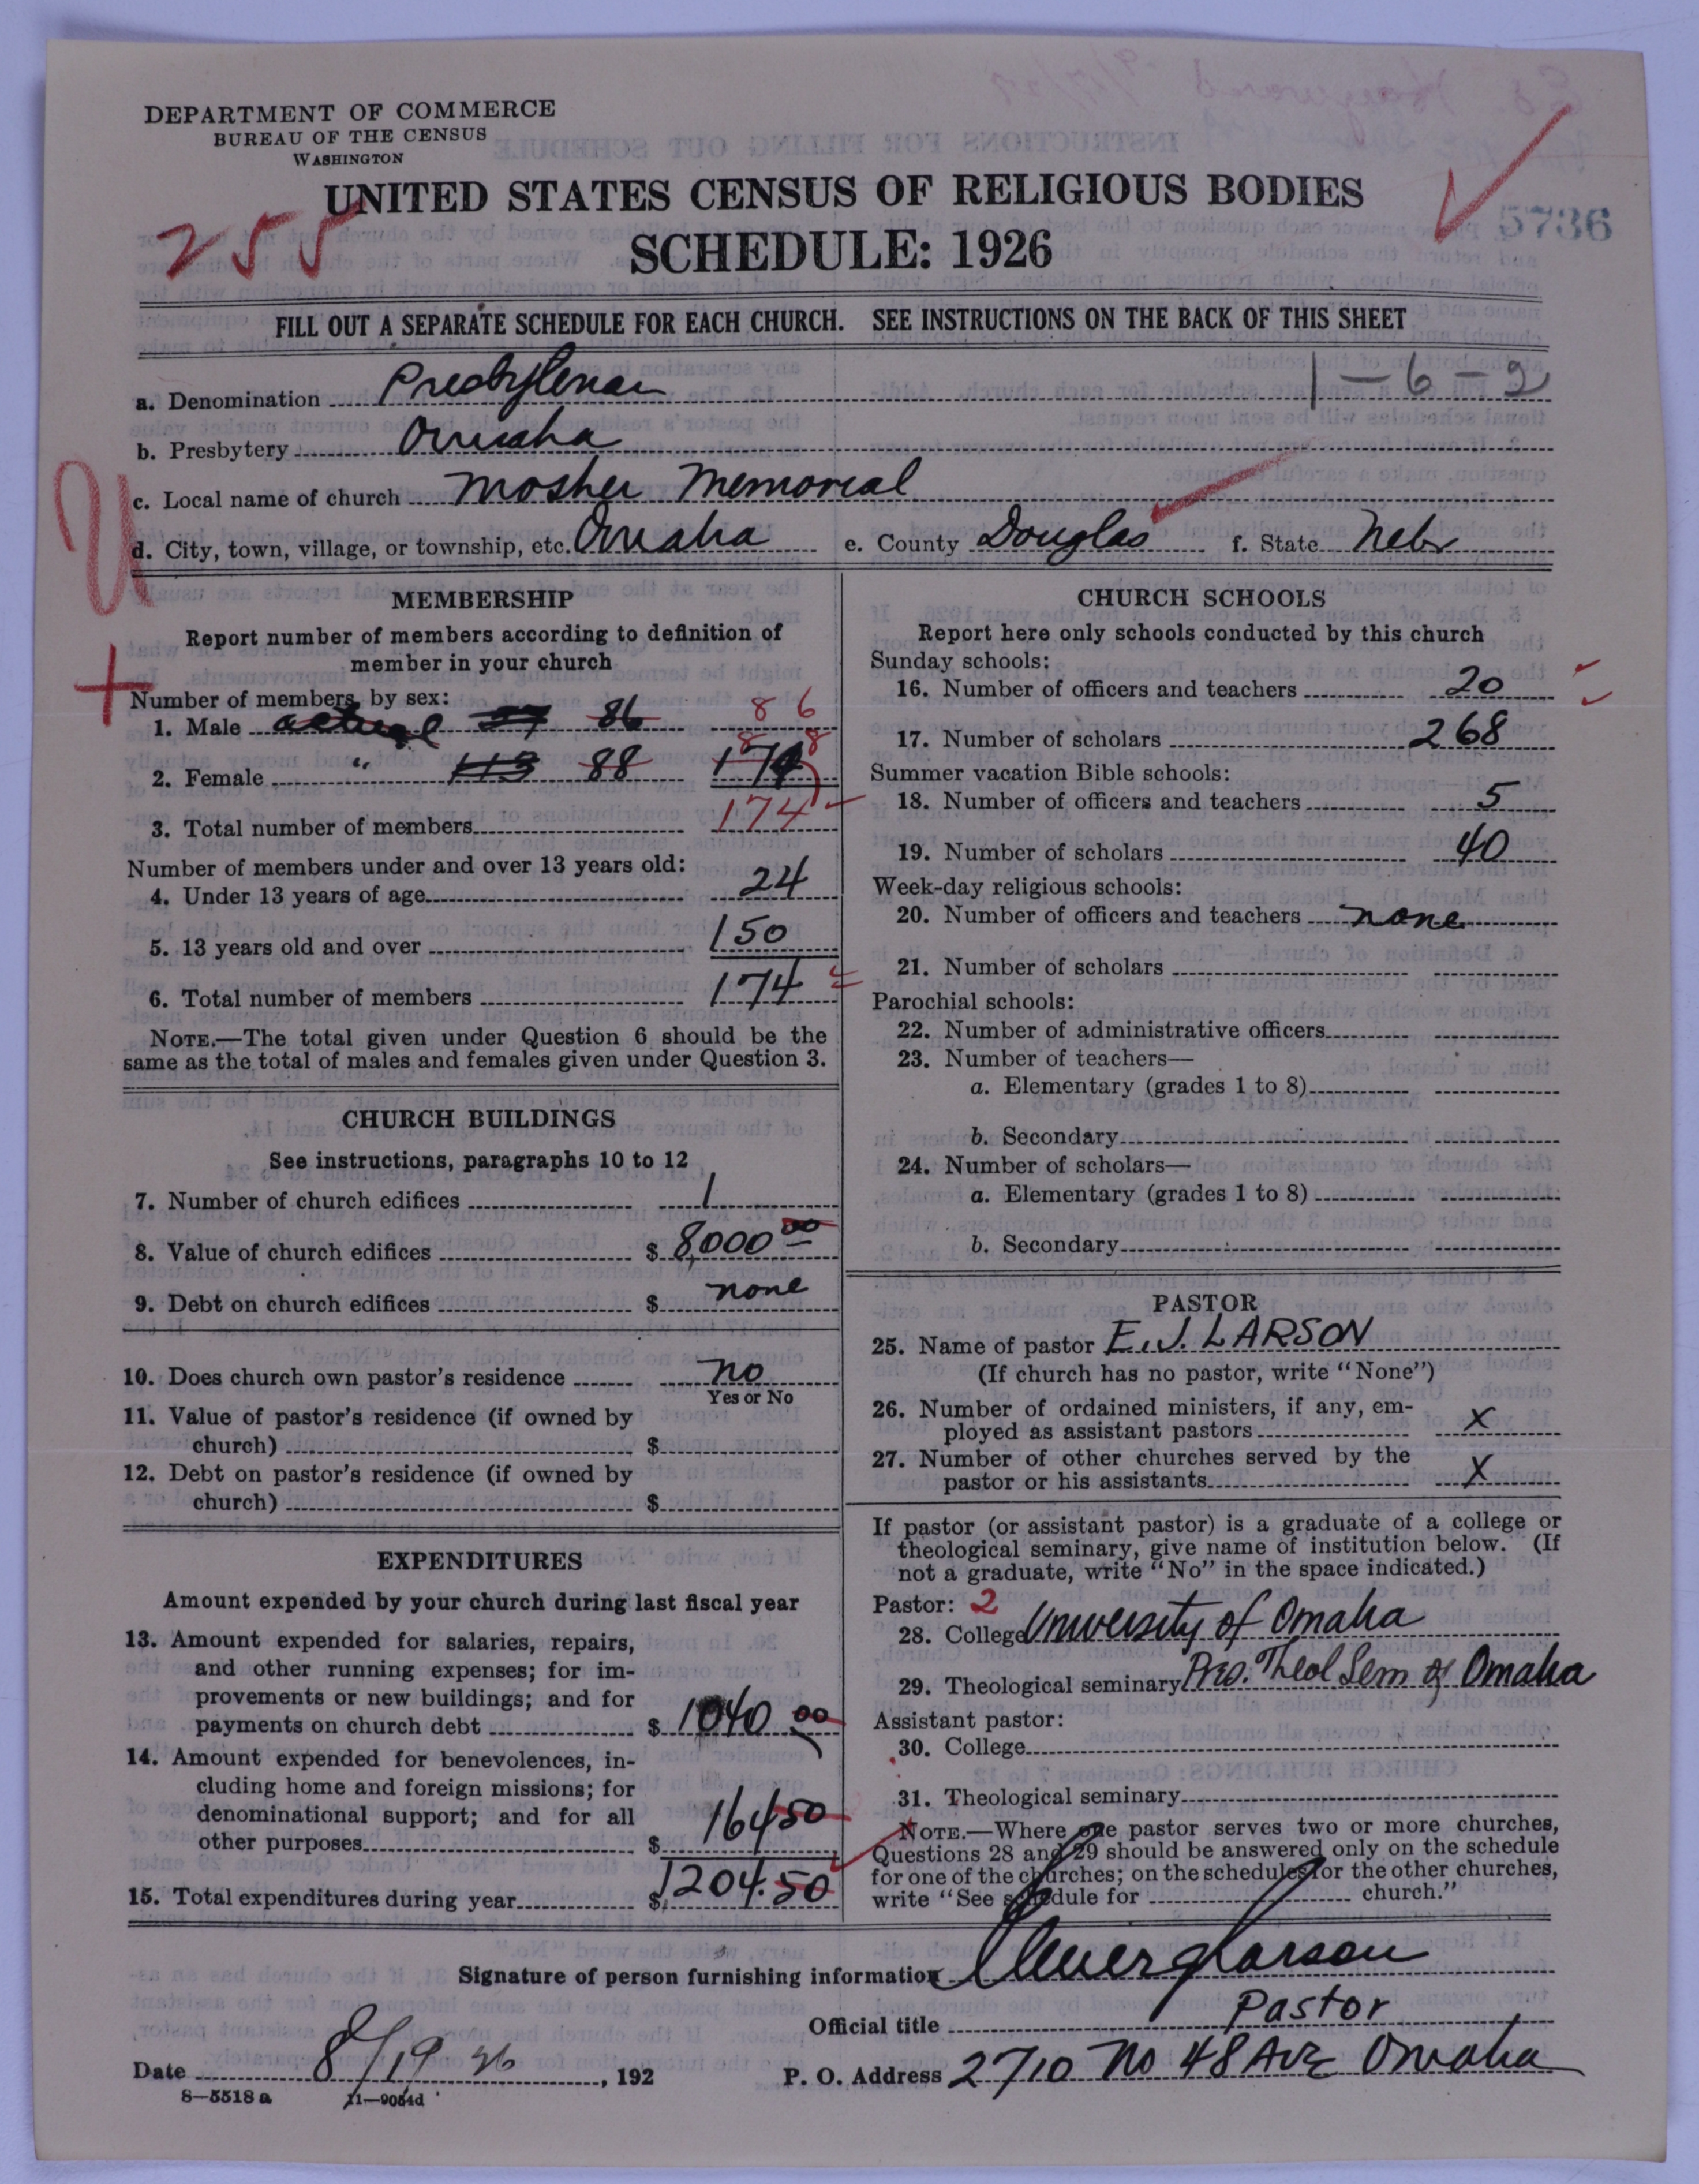 DEPARTMENT OF COMMERCE
BUREAU OF THE CENSUS
WASHINGTON
UNITED STATES CENSUS OF RELIGIOUS BODIES
255
SCHEDULE: 1926
5736
FILL OUT A SEPARATE SCHEDULE FOR EACH CHURCH. SEE INSTRUCTIONS ON THE BACK OF THIS SHEET
a. Denomination Presbyterian 1-6-2
b. Presbytery Omaha
c. Local name of church Mosher Memorial
d. City, town, village, or township, etc. Omaha e. County Douglas f. State Nebr
U
MEMBERSHIP
Report number of members according to definition of
member in your church
Number of members by sex:
1. Male actual 86 86
2. Female " 113 88 88
3. Total number of members 174
Number of members under and over 13 years old:
4. Under 13 years of age 24
5. 13 years old and over 150
6. Total number of members 174
NOTE.—The total given under Question 6 should be the
same as the total of males and females given under Question 3.
CHURCH BUILDINGS
See instructions, paragraphs 10 to 12
7. Number of church edifices 1
8. Value of church edifices $ 8,000 00
9. Debt on church edifices $ none
10. Does church own pastor's residence no
Yes or No
11. Value of pastor's residence (if owned by
church) $
12. Debt on pastor's residence (if owned by
church) $
EXPENDITURES
Amount expended by your church during last fiscal year
13. Amount expended for salaries, repairs,
and other running expenses; for im-
provements or new buildings; and for
payments on church debt $ 1040 00
14. Amount expended for benevolences, in-
cluding home and foreign missions; for
denominational support; and for all
other purposes $ 164 50
15. Total expenditures during year $ 1204.50
CHURCH SCHOOLS
Report here only schools conducted by this church
Sunday schools:
16. Number of officers and teachers 20
17. Number of scholars 268
Summer vacation Bible schools:
18. Number of officers and teachers 5
19. Number of scholars 40
Week-day religious schools:
20. Number of officers and teachers none
21. Number of scholars
Parochial schools:
22. Number of administrative officers
23. Number of teachers—
a. Elementary (grades 1 to 8)
b. Secondary
24. Number of scholars—
a. Elementary (grades 1 to 8)
b. Secondary
PASTOR
25. Name of pastor E. J. LARSON
(If church has no pastor, write "None")
26. Number of ordained ministers, if any, em-
ployed as assistant pastors X
27. Number of other churches served by the
pastor or his assistants X
If pastor (or assistant pastor) is a graduate of a college or
theological seminary, give name of institution below. (If
not a graduate, write "No" in the space indicated.)
Pastor: 2
28. College University of Omaha
29. Theological seminary Pres. Theol Sem of Omaha
Assistant pastor:
30. College
31. Theological seminary
NOTE.—Where one pastor serves two or more churches,
Questions 28 and 29 should be answered only on the schedule
for one of the churches; on the schedules for the other churches,
write "See schedule for church."
Signature of person furnishing information Elmer J Larson
Official title Pastor
Date 8/19 26, 192 P. O. Address 2710 No 48 Ave Omaha
8—5518 a 11—9054d